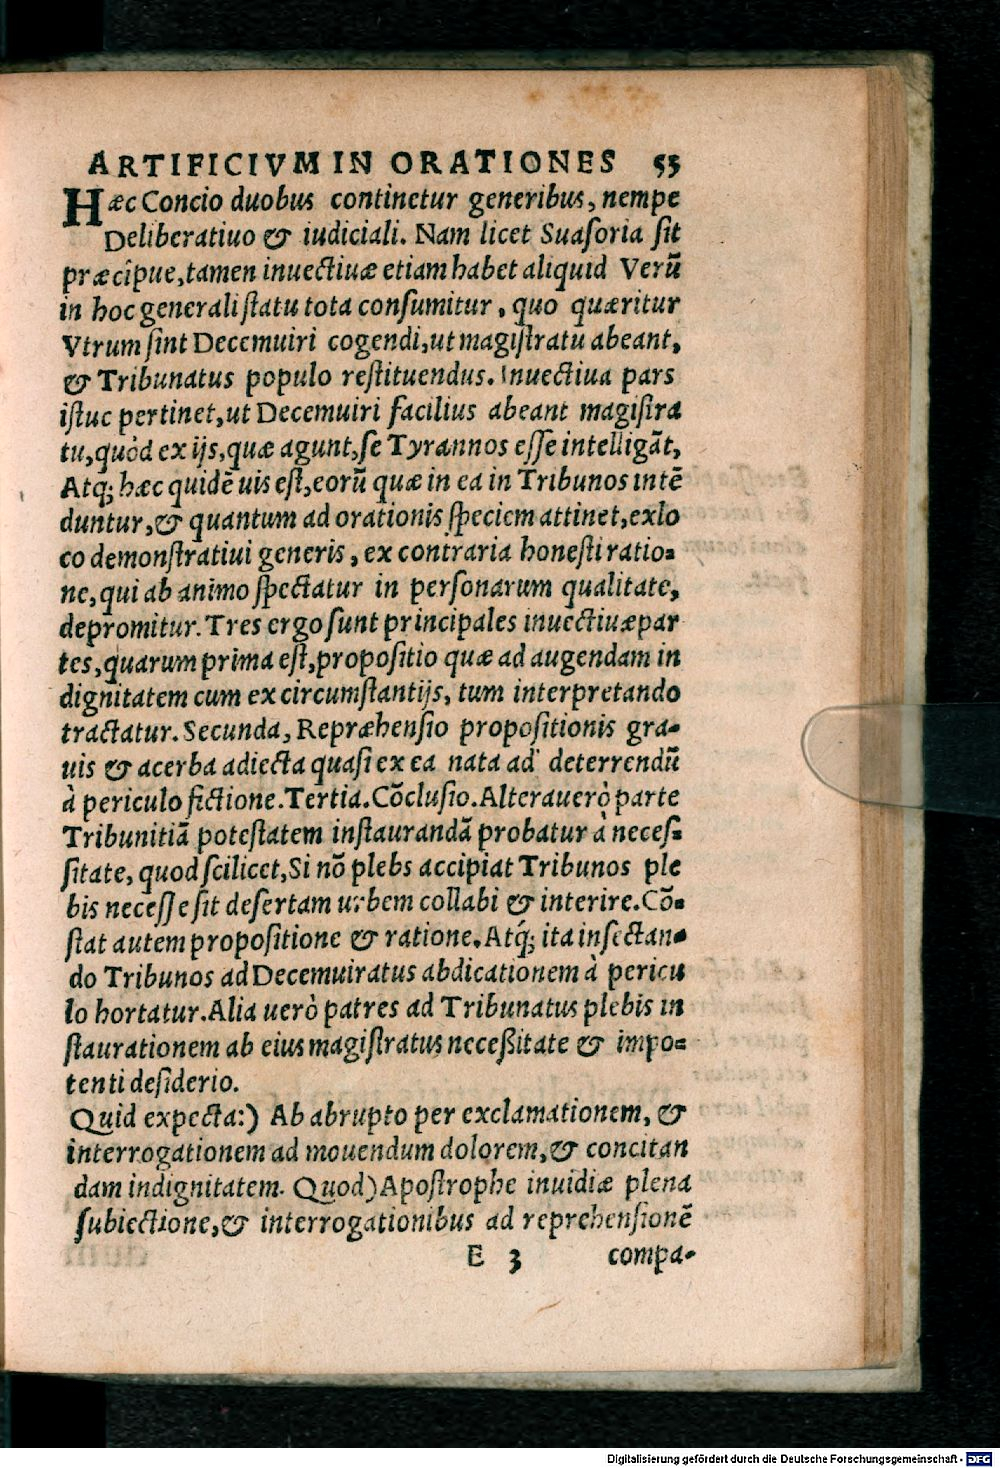 ARTIFICIVM IN ORATIONES 55
Hæc Concio duobus continetur generibus, nempe
Deliberatiuo & iudiciali. Nam licet Suasoria sit
præcipue, tamen inuectiuæ etiam habet aliquid Verũ
in hoc generali statu tota consumitur, quo quæritur
Vtrum sint Decemuiri cogendi, ut magistratu abeant,
& Tribunatus populo restituendus. Inuectiua pars
istuc pertinet, ut Decemuiri facilius abeant magistra
tu, quòd ex ijs, quæ agunt, se Tyrannos esse intelligãt,
Atq; hæc quidẽ uis est, eorũ quæ in ea in Tribunos intẽ
duntur, & quantum ad orationis speciem attinet, ex lo
co demonstratiui generis, ex contraria honesti ratio-
ne, qui ab animo spectatur in personarum qualitate,
depromitur. Tres ergo sunt principales inuectiuæ par
tes, quarum prima est, propositio quæ ad augendam in
dignitatem cum ex circumstantijs, tum interpretando
tractatur. Secunda, Repræhensio propositionis gra-
uis & acerba adiecta quasi ex ea nata ad deterrendũ
à periculo fictione. Tertia. Cõclusio. Altera uerò parte
Tribunitiã potestatem instaurandã probatur à neces-
sitate, quod scilicet, Si nõ plebs accipiat Tribunos ple
bis necesse sit desertam urbem collabi & interire. Cõ-
stat autem propositione & ratione. Atq; ita insectan-
do Tribunos ad Decemuiratus abdicationem à pericu
lo hortatur. Alia uerò patres ad Tribunatus plebis in
staurationem ab eius magistratus neceßitate & impo-
tenti desiderio.
Quid expecta:) Ab abrupto per exclamationem, &
interrogationem ad mouendum dolorem, & concitan
dam indignitatem. Quod) Apostrophe inuidiæ plena
subiectione, & interrogationibus ad reprehensionẽ
E 3 compa-
Digitalisierung gefördert durch die Deutsche Forschungsgemeinschaft - DFG